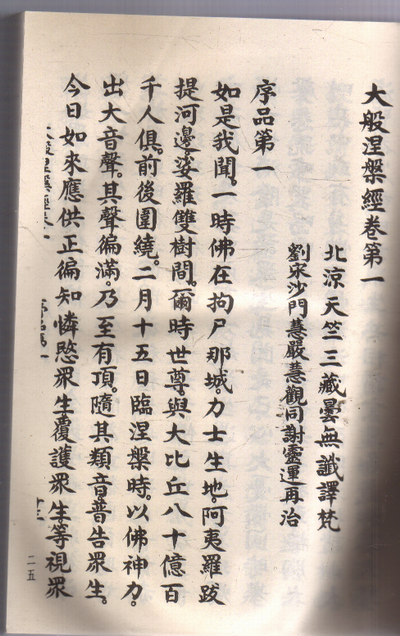 大般涅槃經卷第一
北涼天竺三藏曇無讖譯梵
劉宋沙門慧嚴慧觀同謝靈運再治
序品第一
如是我聞。一時佛在拘尸那城。力士生地。阿夷羅跋
提河邊。娑羅雙樹間。爾時世尊與大比丘八十億百
千人俱。前後圍繞。二月十五日臨涅槃時。以佛神力。
出大音聲。其聲徧滿。乃至有頂。隨其類音普告眾生。
今日如來應供正徧知憐愍眾生覆護眾生等視眾
大般涅槃經卷一
序品第一
十三
二一五